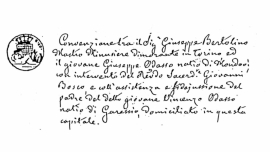 Convenzione tra il Sig. Giuseppe Bertolino
Mastro Minusiere dimorante in Torino ed
il giovane Giuseppe Odasso natio di Mondovì
con intervento del Rev.do Sacerd. Giovanni
Bosco e coll'assistenza e fidejussione del
padre del detto giovane Vincenzo Odasso
natio di Garessio domiciliato in questa
capitale.